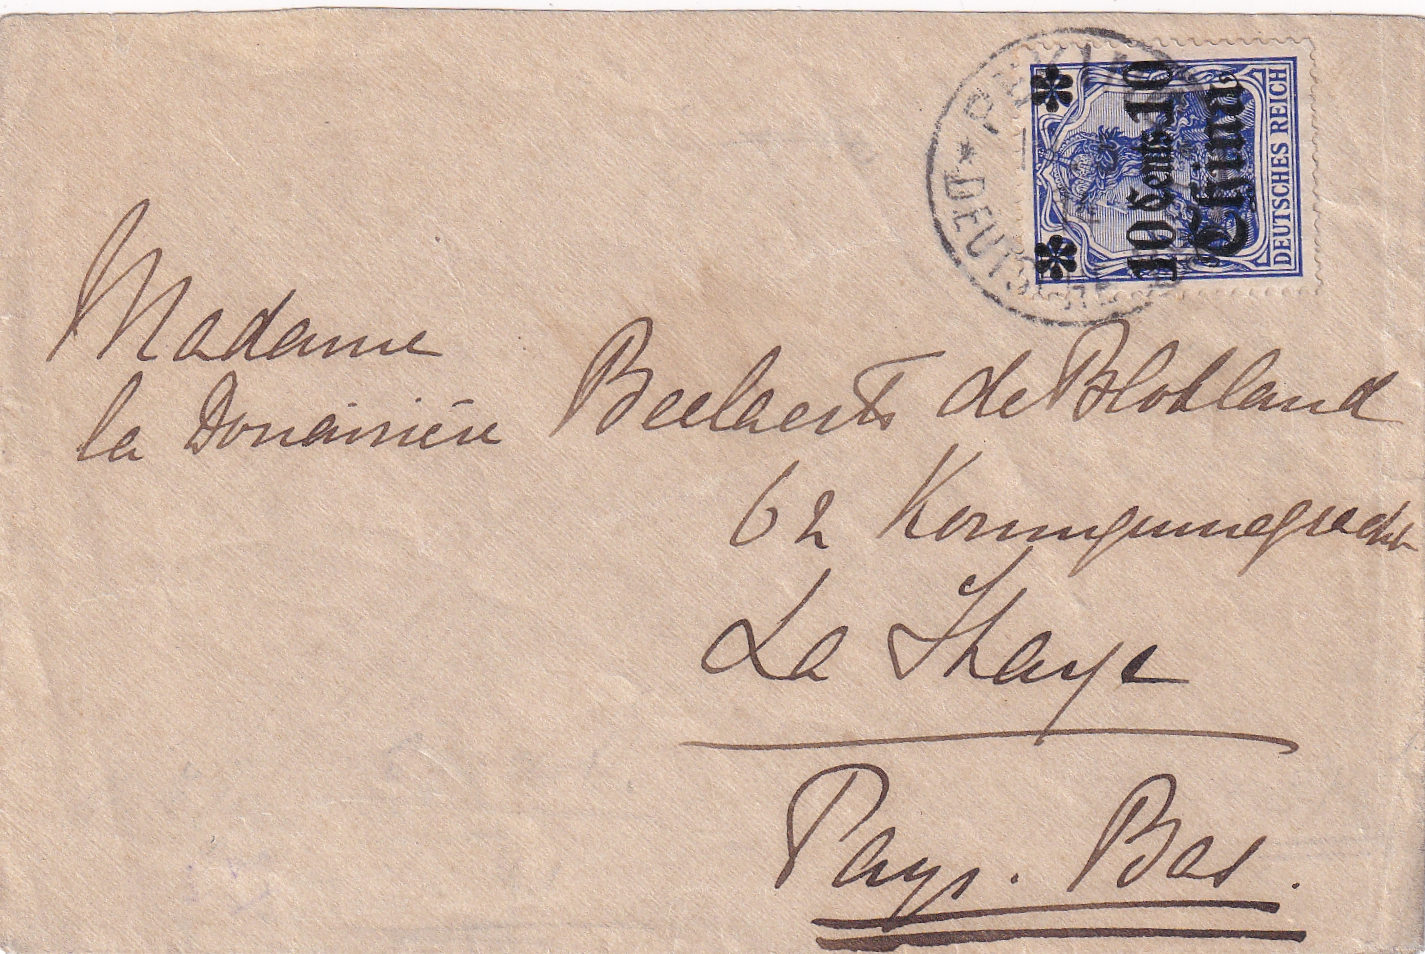 PEKING
DEUTSCHE
DEUTSCHES REICH
10 Cents 10
China
Madame
la Douairière Beelaerts de Blokland
62 Koninginnegracht
La Haye
Pays. Bas.